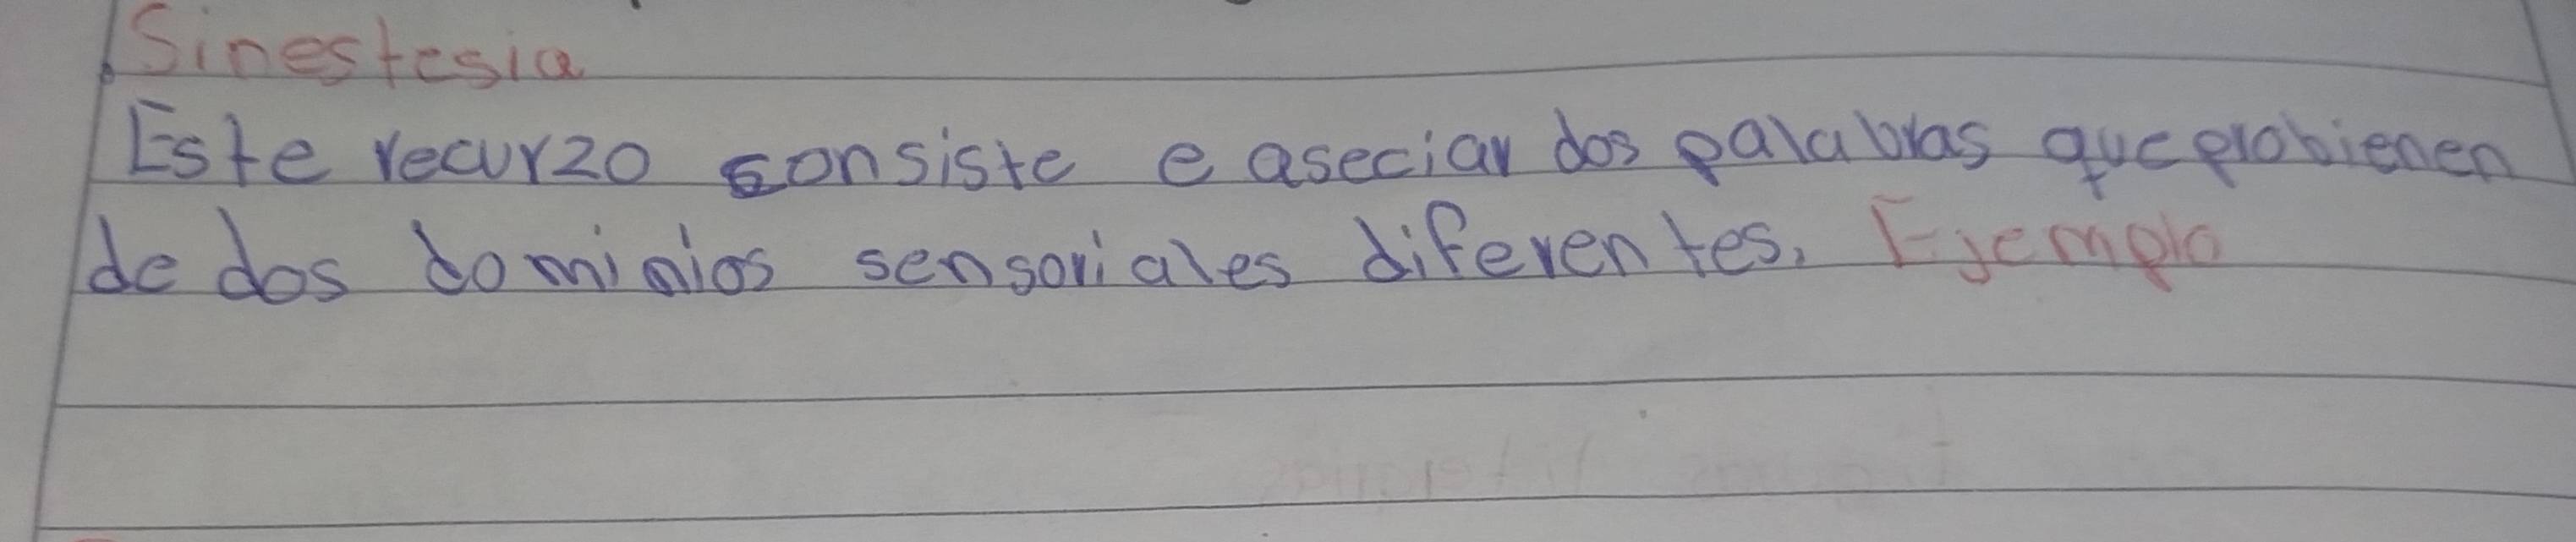 Sinestesia
Este recurzo consiste e aseciar dos palabras que probienen
de dos dominios sensoriales diferentes. Ejemplo